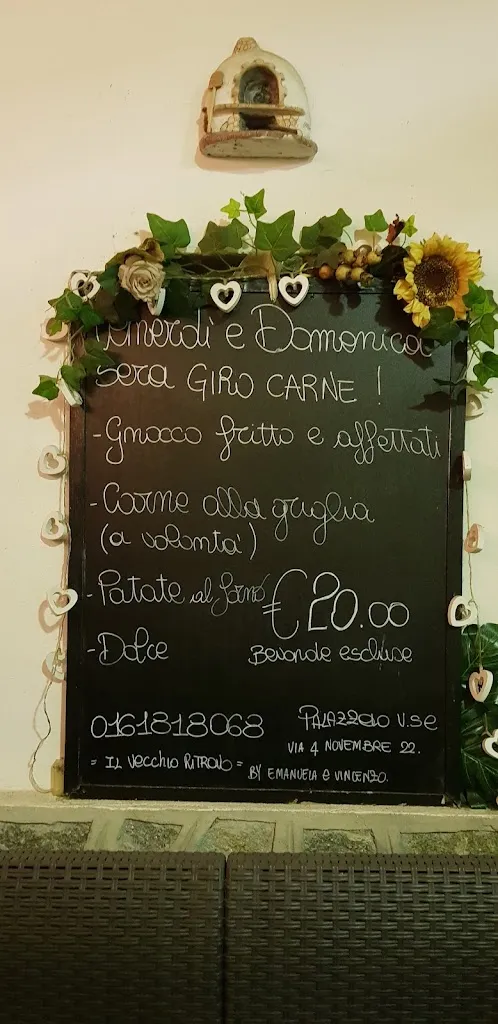 Venerdì e Domenica
sera GIRO CARNE !
- Gnocco fritto e affettati
- Carne alla griglia
(a volontà)
- Patate al forno
€ 20.00
- Dolce
Bevande escluse
0161818068
PALAZZOLO V.SE
VIA 4 NOVEMBRE 22.
= IL Vecchio RITROVO =
BY EMANUELA e VINCENZO.